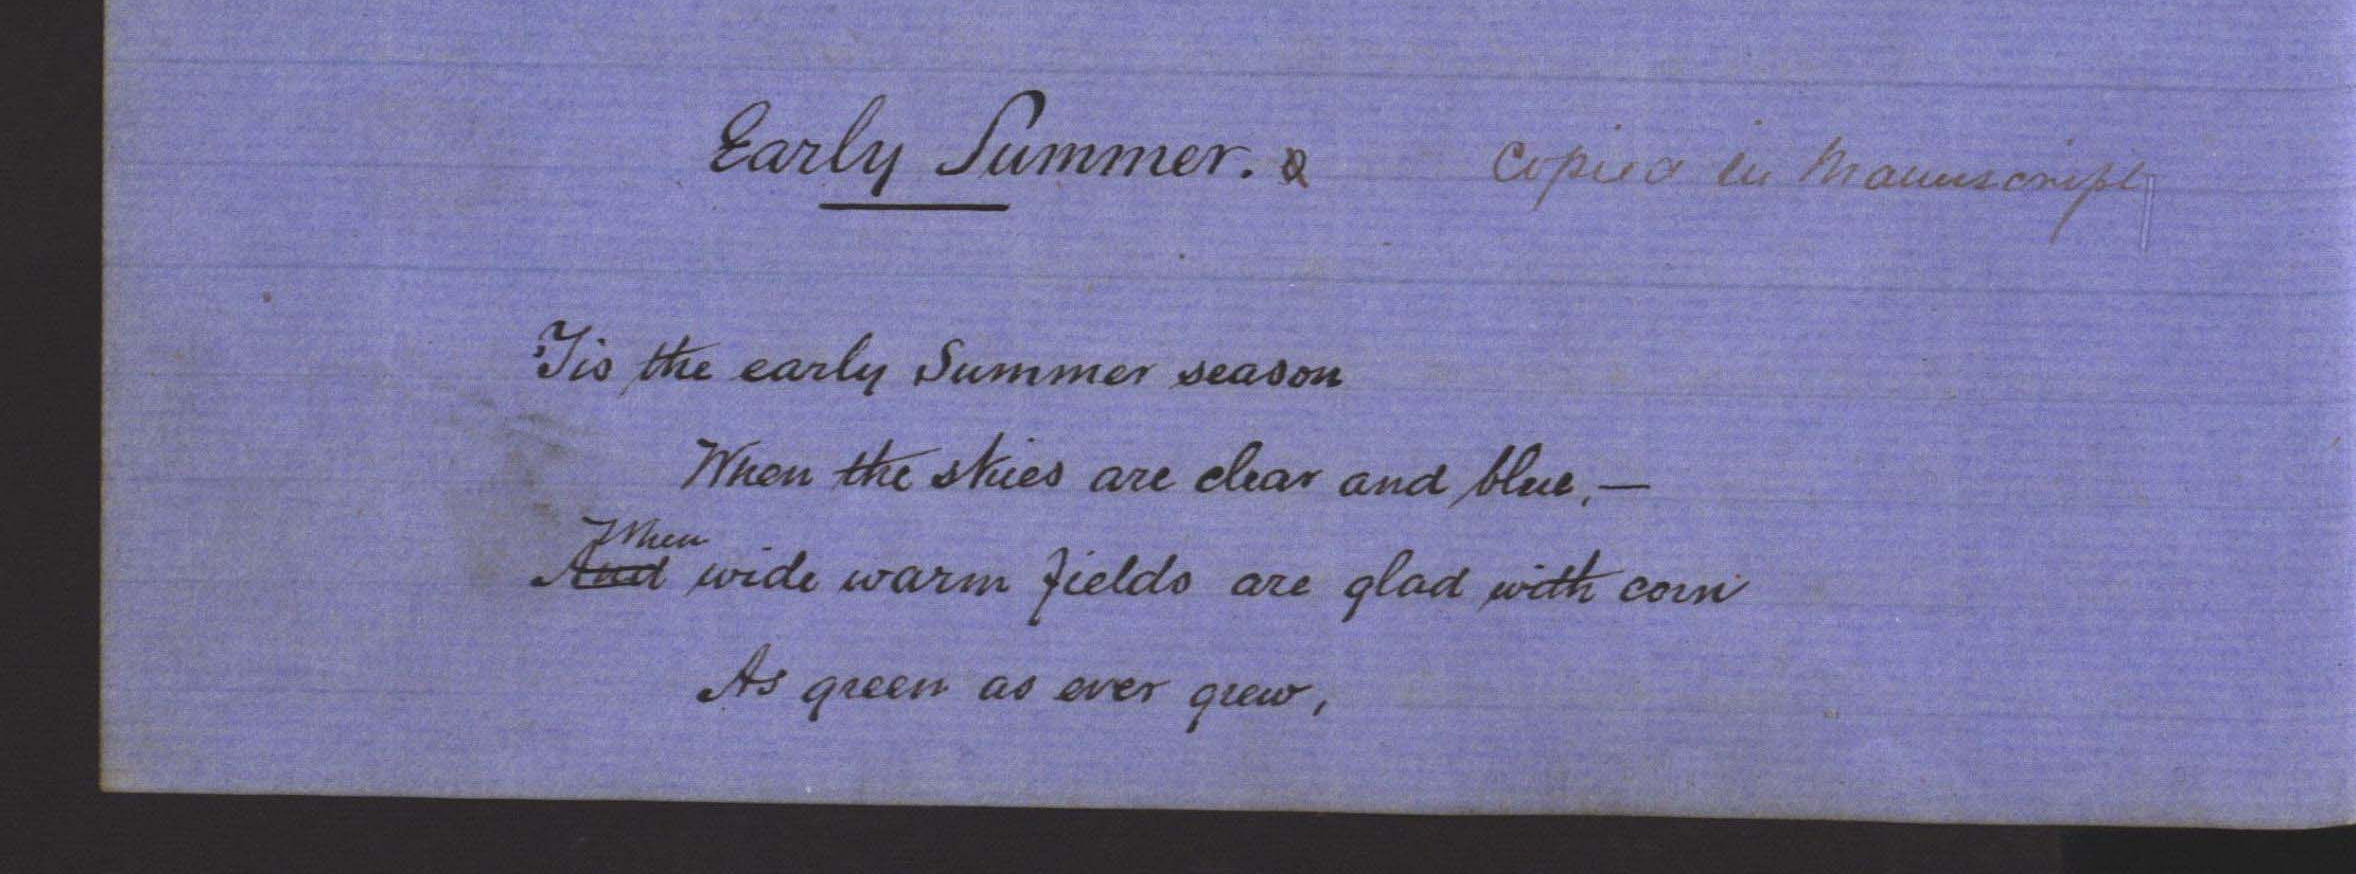 Early Summer. Copied in Manuscript
'Tis the early Summer season
When the skies are clear and blue,—
When
And wide warm fields are glad with corn
As green as ever grew,